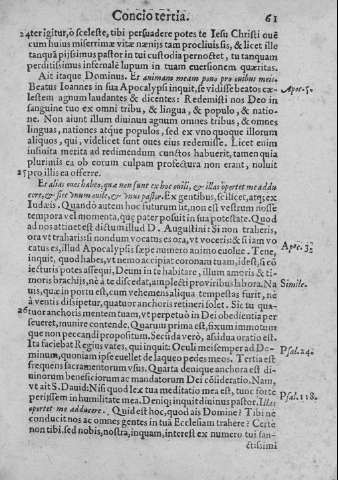 Concio tertia. 61
24 ter igitur, ò sceleste, tibi persuadere potes te Iesu Christi ouẽ
cum huius miserrimæ vitæ nænijs tam procliuis sis, & licet ille
tanquã pijssimus pastor in tui custodia pernoctet, tu tanquam
perditissimus infernale lupum in tuam euersionem quæritas.
Ait itaque Dominus. Et animam meam pono pro ouibus meis.
Beatus Ioannes in sua Apocalypsi inquit, se vidisse beatos cæ- Apoc. 5.
lestem agnum laudantes & dicentes: Redemisti nos Deo in
sanguine tuo ex omni tribu, & lingua, & populo, & natio-
ne. Non aiunt illum diuinum agnum omnes tribus, & omnes
linguas, nationes atque populos, sed ex vno quoque illorum
aliquos, qui, videlicet sunt oues eius redemisse. Licet enim
infinita merita ad redimendum cunctos habuerit, tamen quia
plurimis ea ob eorum culpam profectura non erant, noluit
25 pro illis ea offerre.
Et alias oues habeo, quæ non sunt ex hoc ouili, & illas oportet me addu
cere, & fiet vnum ouile, & vnus pastor. Ex gentibus, scilicet, atq; ex
Iudæis. Quando autem hoc futurum sit, non est vestrum nosse
tempora vel momenta, quę pater posuit in sua potestate. Quod
ad nos attinet est dictum illud D. Augustini: Si non traheris,
ora vt traharis: si nondum vocatus es ora, vt voceris: & si iam vo
catus es, illud Apocalypsis sępe numero animo euolue. Tene, Apoc. 3.
inquit, quod habes, vt nemo accipiat coronam tuam, id est, si cõ
iecturis potes assequi, Deum in te habitare, illum amoris & ti-
moris brachijs, nè à te discedat, amplecti pro viribus labora. Na Simile.
uis, quæ in portu est, cum vehemens aliqua tempestas furit, nè
à ventis dissipetur, quatuor anchoris retineri solet. Sic tu qua-
26 tuor anchoris mentem tuam, vt perpetuò in Dei obedientia per
seueret, munire contende. Quarum prima est, fixum immotum
que non peccandi propositum. Secũda verò, assidua oratio est.
Ita faciebat Regius vates, qui inquit. Oculi mei semper ad Do- Psal. 24.
minum, quoniam ipse euellet de laqueo pedes meos. Tertia est
frequens sacramentorum vsus. Quarta denique anchora est di-
uinorum beneficiorum ac mandatorum Dei cõsideratio. Nam,
vt ait S. Dauid: Nisi quod lex tua meditatio mea est, tunc forte Psal. 118.
perijssem in humilitate mea. Deniq; inquit diuinus pastor. Illas
oportet me adducere. Quid est hoc, quod ais Domine? Tibi nè
conducit nos ac omnes gentes in tuã Ecclesiam trahere? Certè
non tibi. sed nobis, nostra, inquam, interest ex numero tui san-
ctissimi